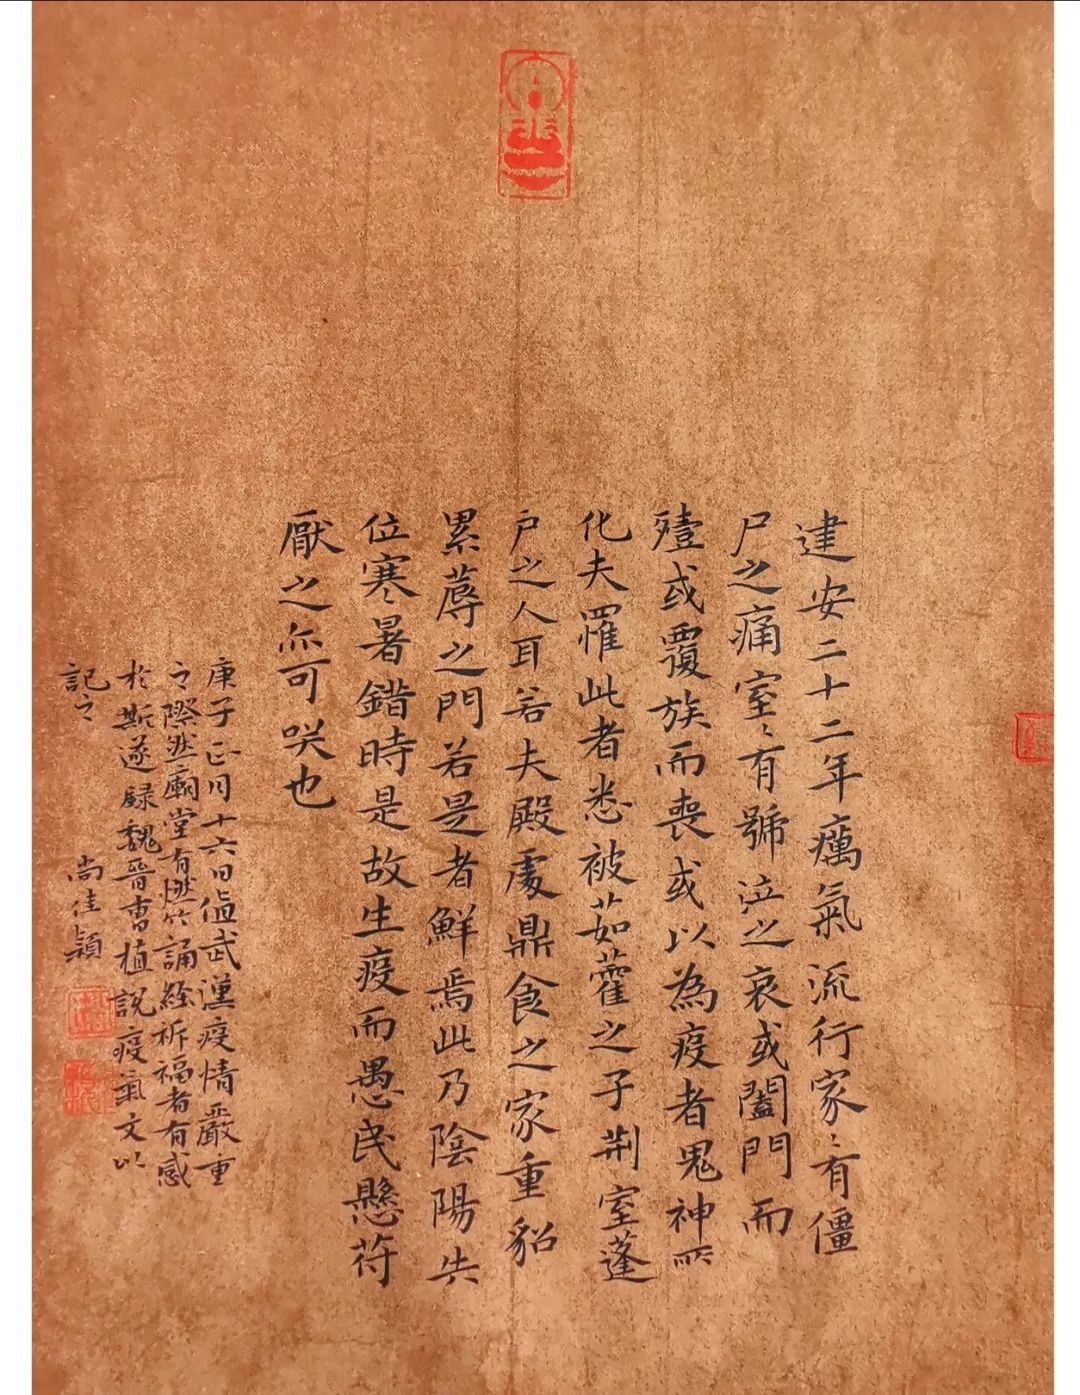 建安二十二年癘氣流行家〻有僵
尸之痛室〻有號泣之哀或闔門而
殪或覆族而喪或以為疫者鬼神所
化夫罹此者悉被茹藿之子荆室蓬
户之人耳若夫殿處鼎食之家重貂
累蓐之門若是者鮮焉此乃陰陽失
位寒暑錯時是故生疫而愚民懸苻
厭之亦可咲也
庚子正月十六日值武漢疫情嚴重
之際然廟堂有燃竹誦經祈福者有感
於斯遂録魏晉曹植説疫氣文以
記之
尚佳穎